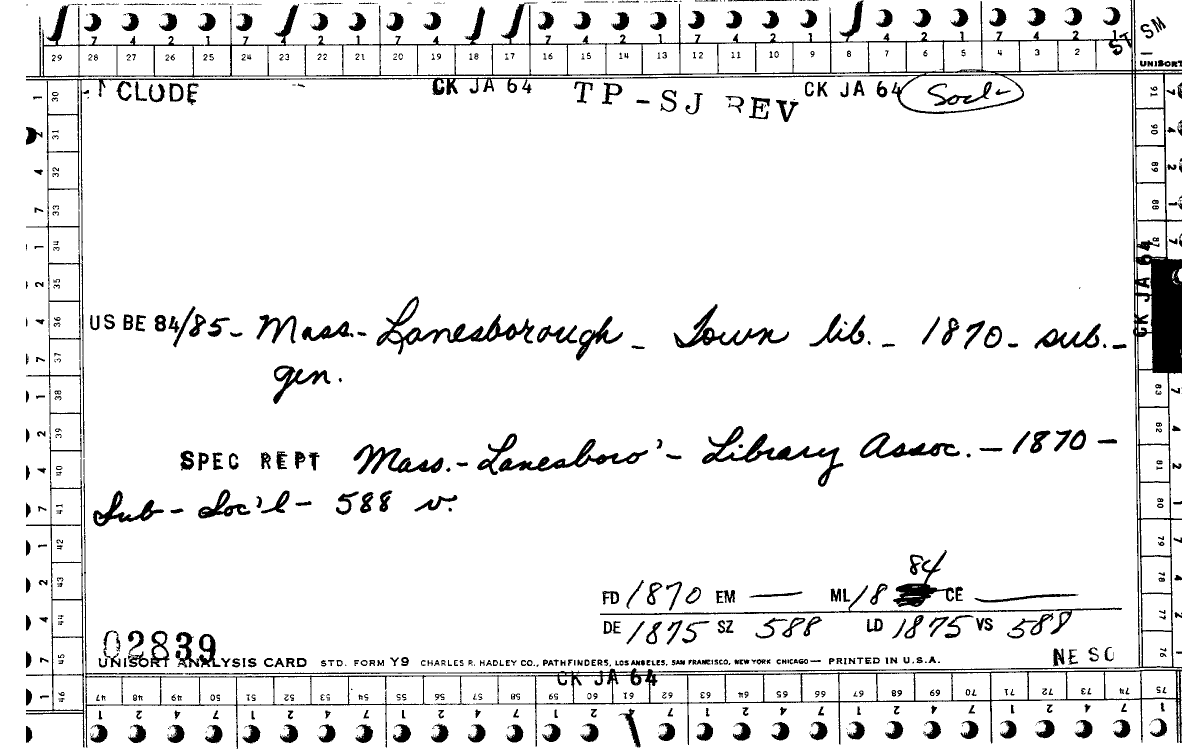 SM
ST
7 4 2 1 7 2 1 7 4 2 1 7 4 2 1 7 4 2 1 7 4 2 1
29 28 27 26 25 24 23 22 21 20 19 18 17 16 15 14 13 12 11 10 9 8 7 6 5 4 3 2 1
UNISORT
CLUDE CK JA 64 TP-SJ REV CK JA 64 Socl-
US BE 84/85- Mass.- Lanesborough - Town lib. - 1870- sub.-
gen.
SPEC REPT Mass.- Lanesboro'- Library Assoc. - 1870 -
Sub - Soc'l - 588 v.
84
FD 1870 EM — ML 18 CE —
DE 1875 SZ 588 LD 1875 VS 588
02839
UNISORT ANALYSIS CARD STD. FORM Y9 CHARLES R. HADLEY CO., PATHFINDERS, LOS ANGELES, SAN FRANCISCO, NEW YORK CHICAGO — PRINTED IN U.S.A.
NE SC
CK JA 64
47 48 49 50 51 52 53 54 55 56 57 58 59 60 61 62 63 64 65 66 67 68 69 70 71 72 73 74 75
30 31 32 33 34 35 36 37 38 39 40 41 42 43 44 45 46
91 90 89 88 87 83 82 81 80 79 78 77 76
CK JA 64